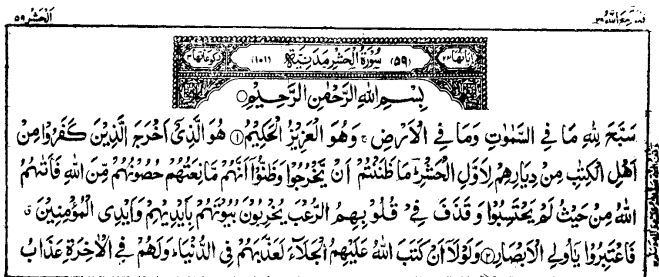 قد سمع الله ٢٨
الحشر ٥٩
اٰیاتها ٢٤ (٥٩) سُوْرَةُ الْحَشْرِ مَدَنِيَّةٌ (١٠١) رکوعاتها ٣
بِسْمِ اللهِ الرَّحْمٰنِ الرَّحِيْمِ
سَبَّحَ لِلّٰهِ مَا فِي السَّمٰوٰتِ وَمَا فِي الْاَرْضِ ۚ وَهُوَ الْعَزِيْزُ الْحَكِيْمُ ① هُوَ الَّذِيْٓ اَخْرَجَ الَّذِيْنَ كَفَرُوْا مِنْ
اَهْلِ الْكِتٰبِ مِنْ دِيَارِهِمْ لِاَوَّلِ الْحَشْرِ ؕ مَا ظَنَنْتُمْ اَنْ يَّخْرُجُوْا وَظَنُّوْٓا اَنَّهُمْ مَّانِعَتُهُمْ حُصُوْنُهُمْ مِّنَ اللهِ فَاَتٰىهُمُ
اللهُ مِنْ حَيْثُ لَمْ يَحْتَسِبُوْا وَقَذَفَ فِيْ قُلُوْبِهِمُ الرُّعْبَ يُخْرِبُوْنَ بُيُوْتَهُمْ بِاَيْدِيْهِمْ وَاَيْدِي الْمُؤْمِنِيْنَ ۗ
فَاعْتَبِرُوْا يٰٓاُولِي الْاَبْصَارِ ② وَلَوْلَآ اَنْ كَتَبَ اللهُ عَلَيْهِمُ الْجَلَآءَ لَعَذَّبَهُمْ فِي الدُّنْيَا ؕ وَلَهُمْ فِي الْاٰخِرَةِ عَذَابُ